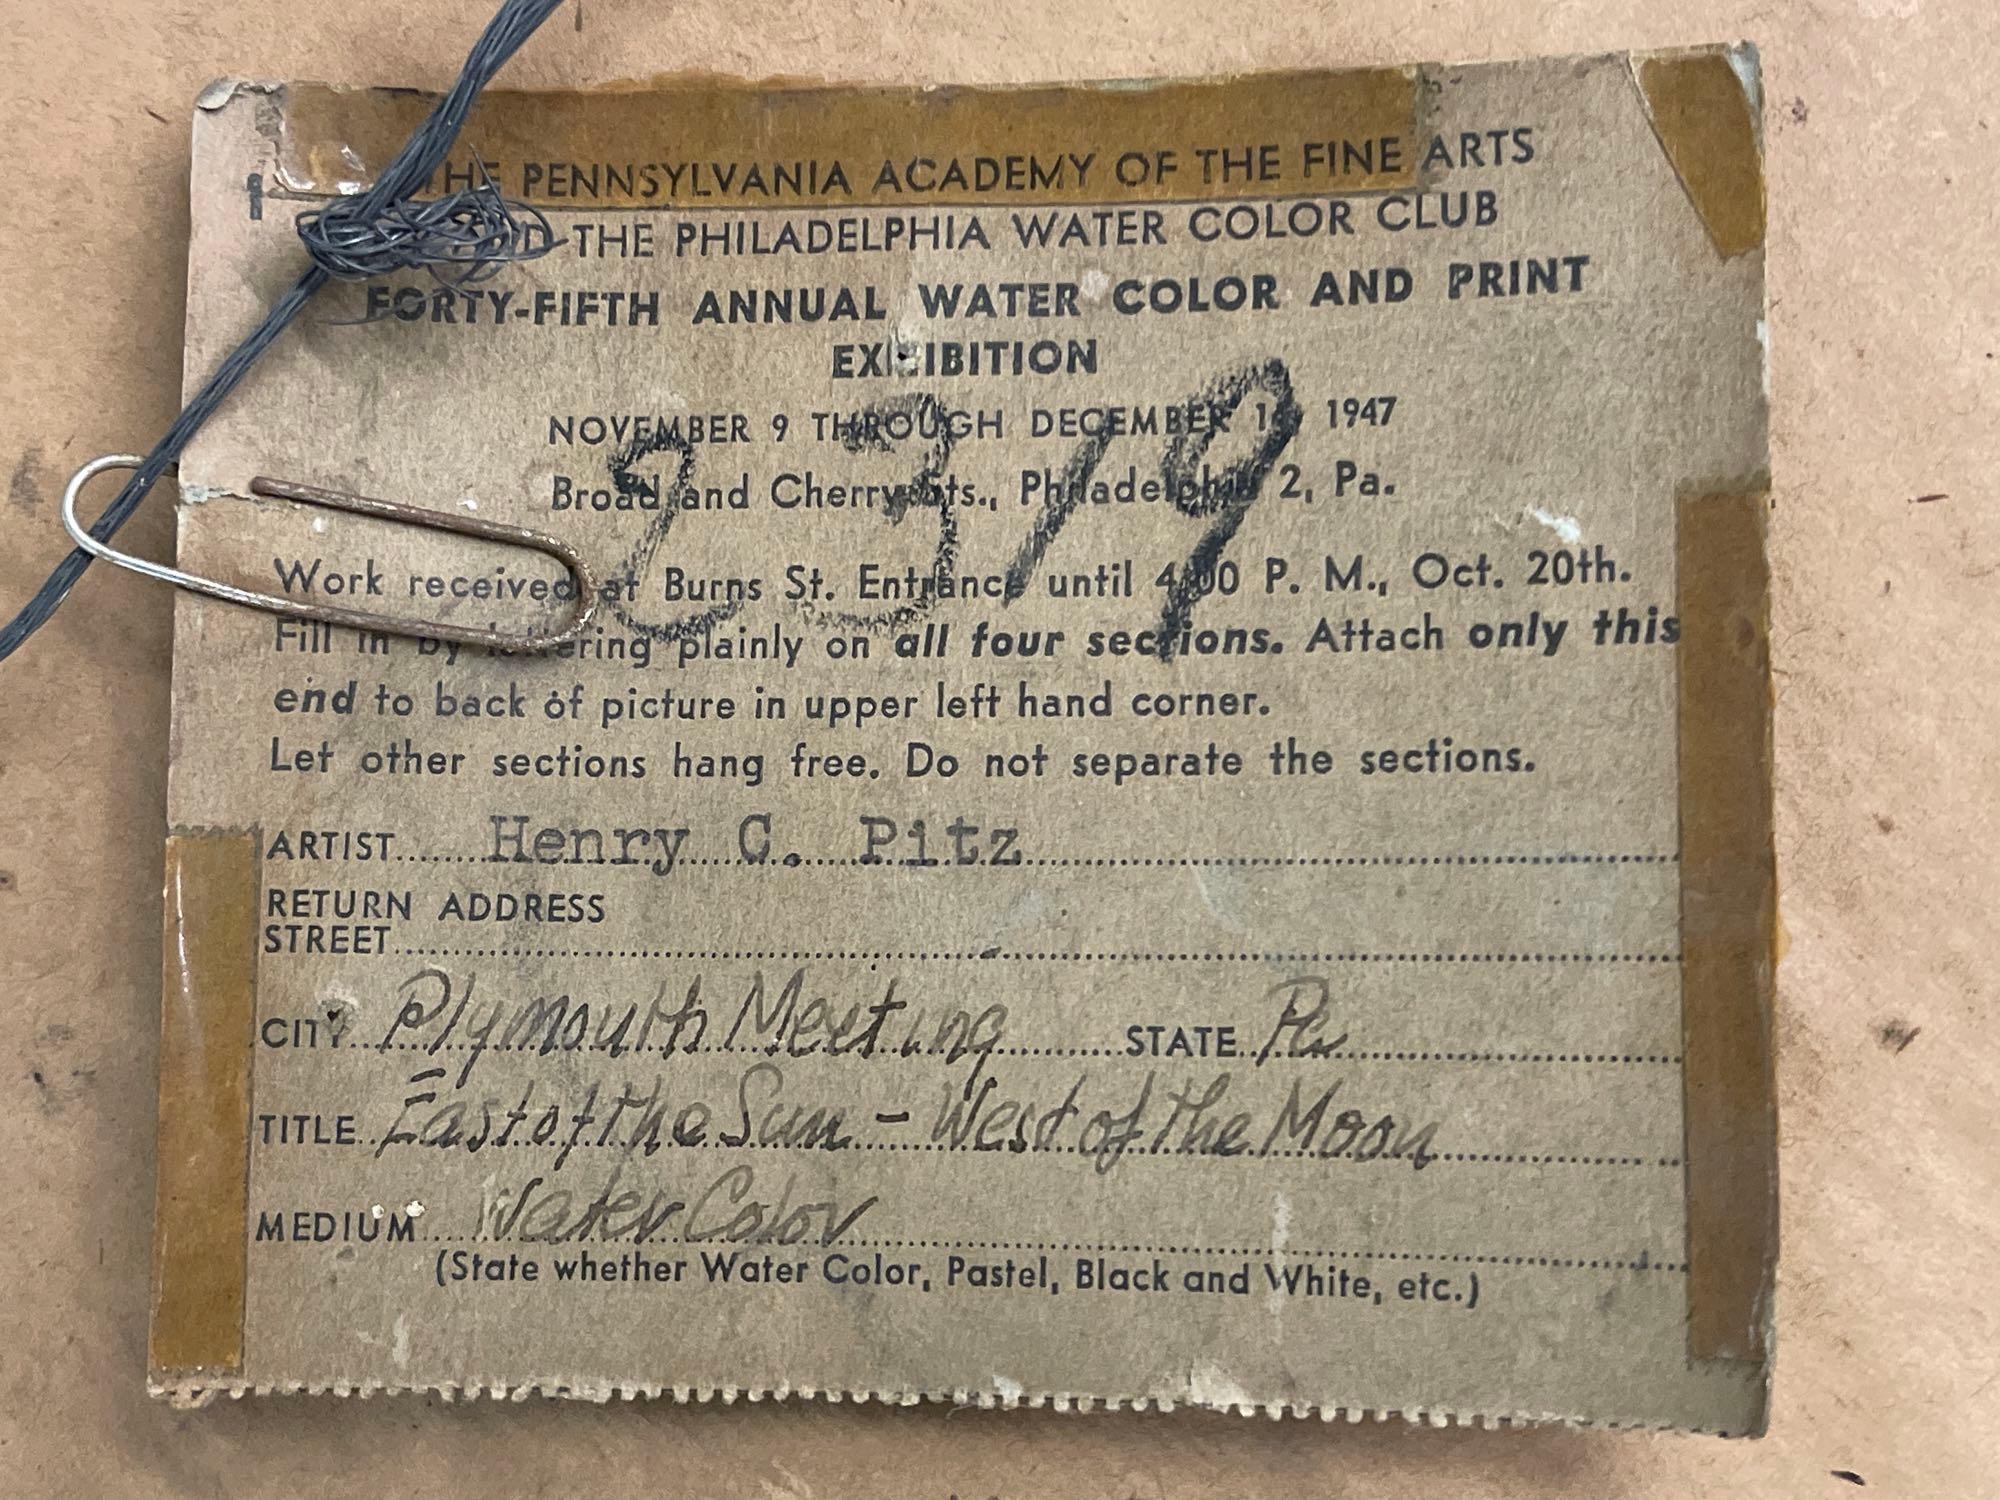 THE PENNSYLVANIA ACADEMY OF THE FINE ARTS
THE PHILADELPHIA WATER COLOR CLUB
FORTY-FIFTH ANNUAL WATER COLOR AND PRINT
EXHIBITION
NOVEMBER 9 THROUGH DECEMBER 1947
Broad and Cherry Sts., Philadelphia 2, Pa.
Work received at Burns St. Entrance until 4:00 P. M., Oct. 20th.
Fill in by lettering plainly on all four sections. Attach only this
end to back of picture in upper left hand corner.
Let other sections hang free. Do not separate the sections.
ARTIST Henry C. Pitz
RETURN ADDRESS
STREET
CITY Plymouth Meeting STATE Pa
TITLE East of the Sun - West of the Moon
MEDIUM Water Color
(State whether Water Color, Pastel, Black and White, etc.)